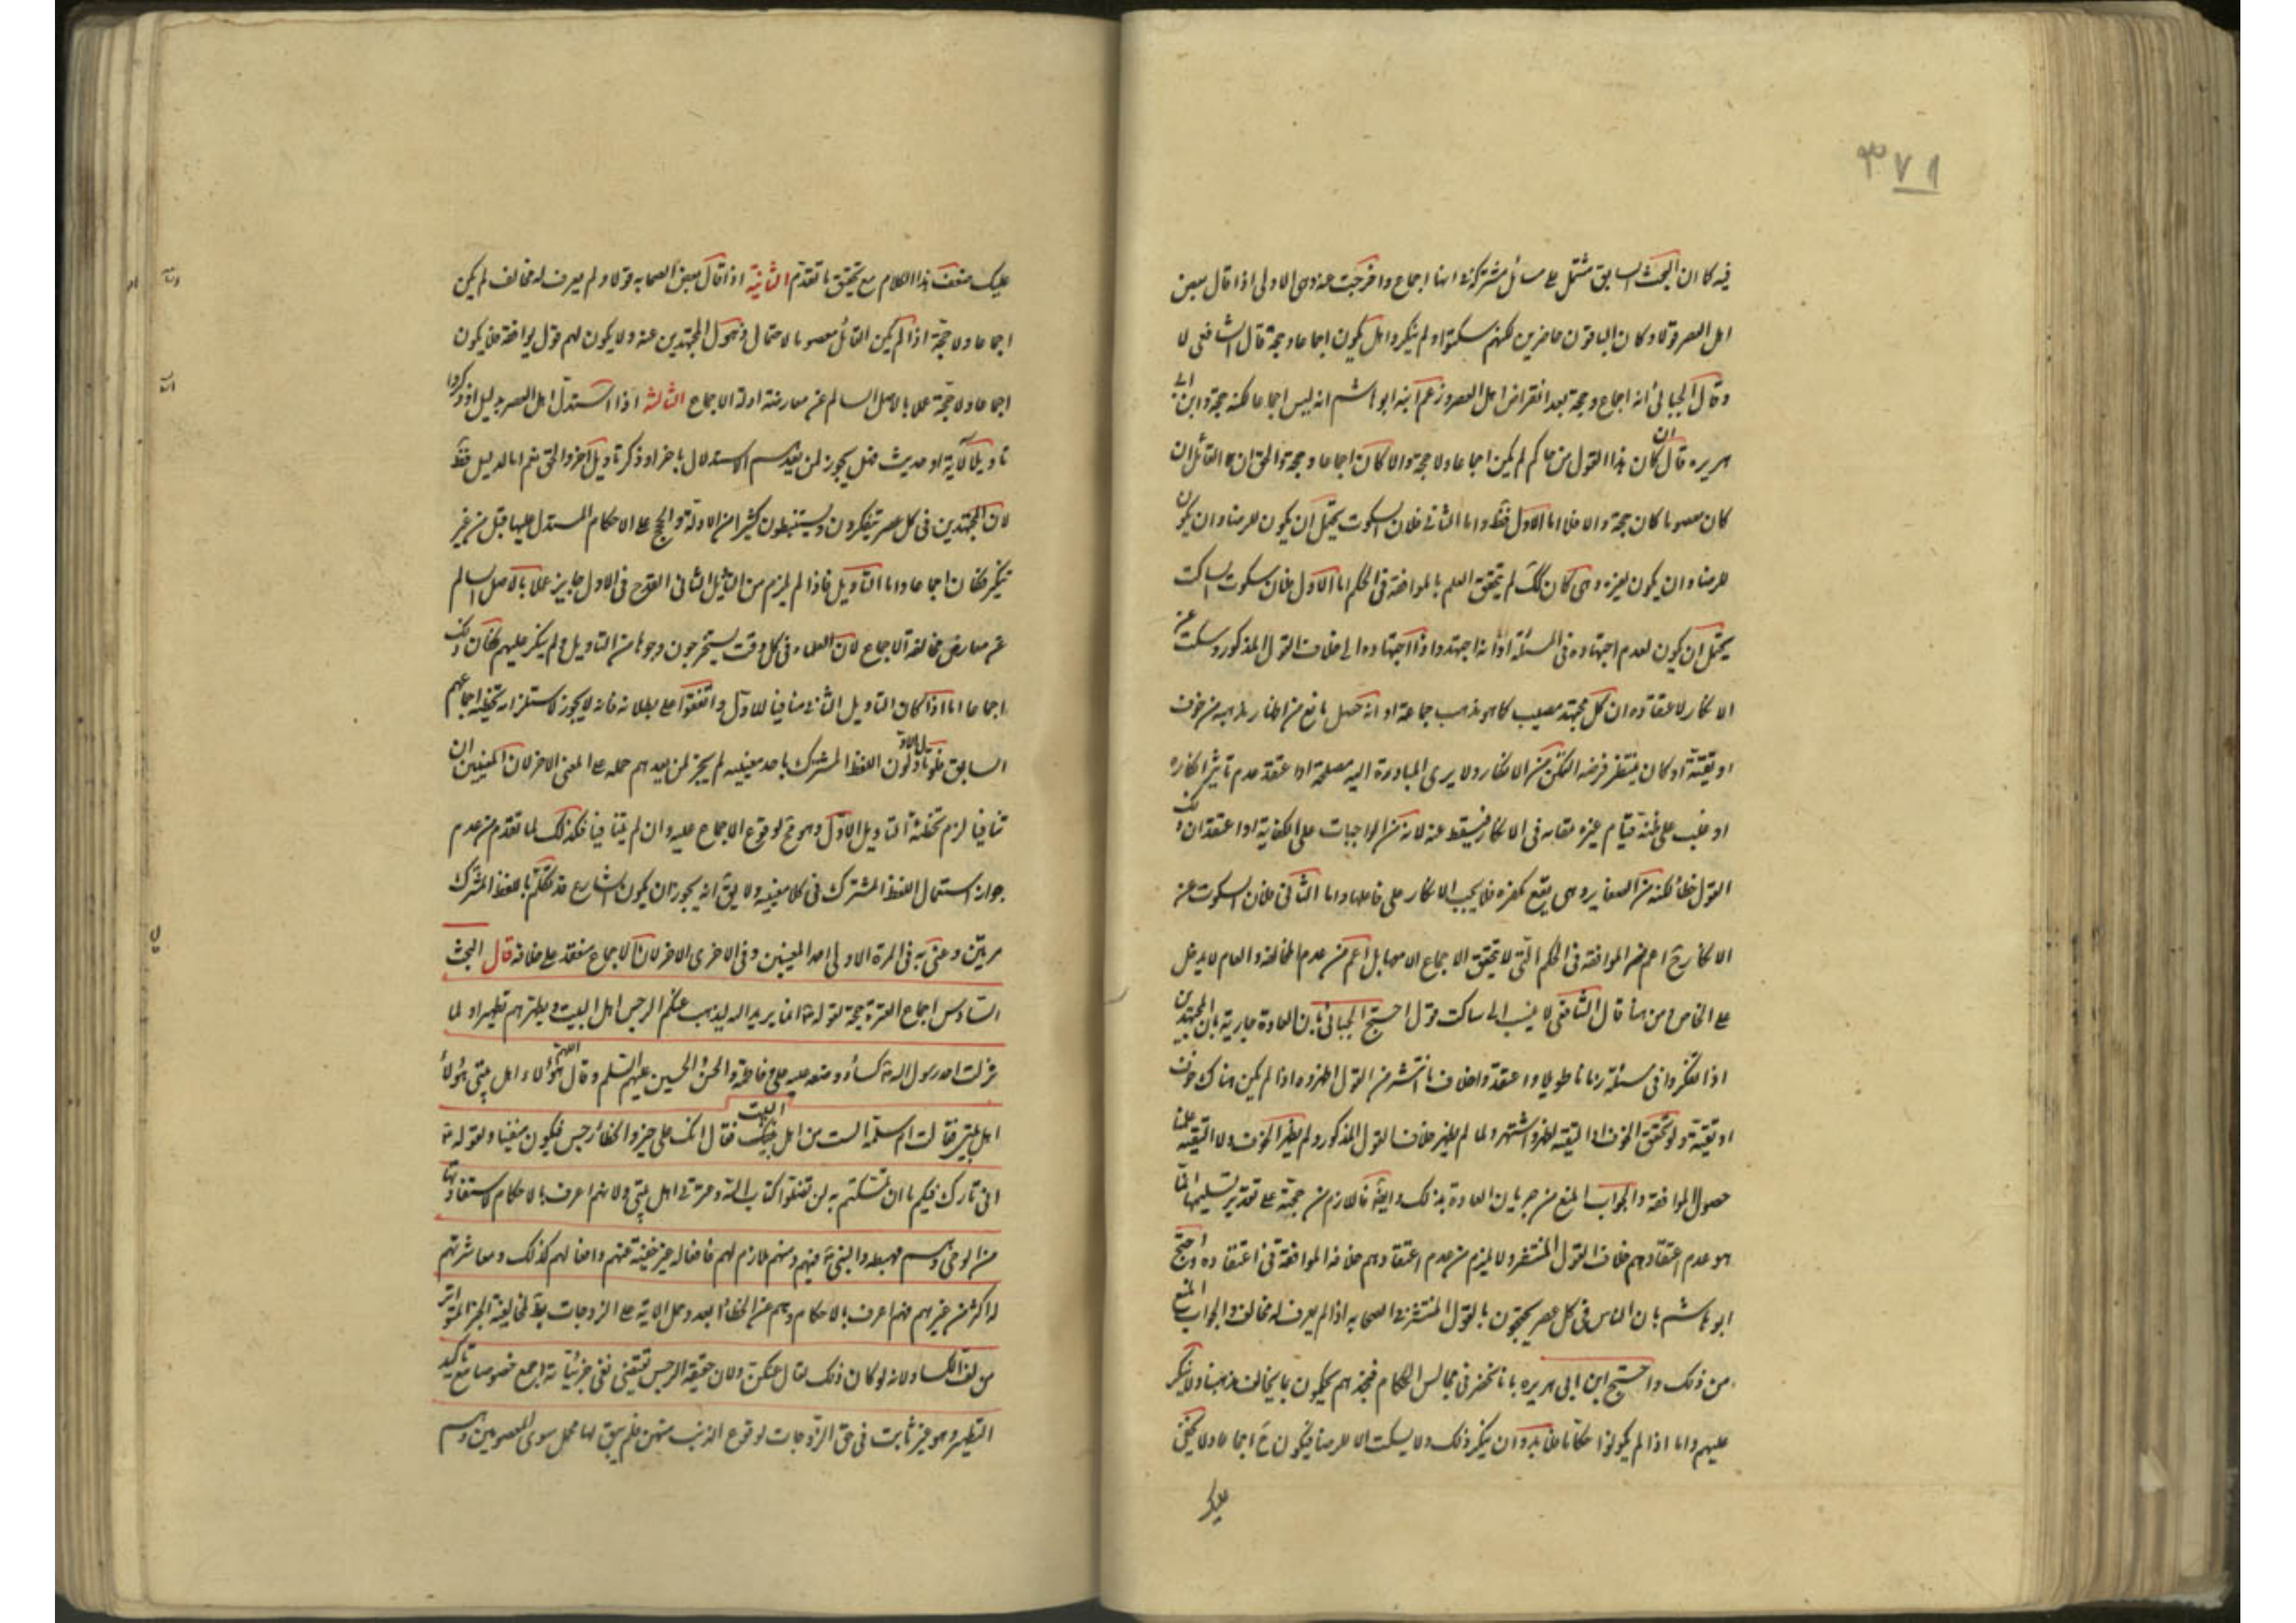 ٣٧١
فيه كما ان البحث السابق مشتمل على مسائل مشتركة في انها اجماع واخرجت عنه وهي الاولى اذا قال بعض
اهل العصر قولا وكان الباقون حاضرين لكنهم سكتوا ولم ينكروا هل يكون اجماعا وحجة قال الشافعي لا
وقال الجبائي انه اجماع وحجة بعد انقراض اهل العصر وزعم ابنه ابو هاشم انه ليس اجماعا لكنه حجة وابن ابي
هريره قال ان كان هذا القول من حاكم لم يكن اجماعا ولا حجة والا كان اجماعا وحجة والحق ان القائل ان
كان معصوما كان حجة والا فلا اما الاول فظ واما الثاني فلان السكوت يحتمل ان يكون للرضا وان يكون
للرضا وان يكون لغيره ومتى كان كك لم يتحقق العلم بالموافقة في الحكم اما الاول فلان سكوت الساكت
يحتمل ان يكون لعدم اجتهاده في المسئلة او انه اجتهد واداه اجتهاده الى خلاف القول المذكور وسكت عن
الانكار لاعتقاده ان كل مجتهد مصيب كما هو مذهب جماعة او انه حصل مانع من اظهار مذهبه من خوف
او تقية او كان ينتظر فرصة التمكن من الانكار ولا يرى المبادرة اليه مصلحة او اعتقد عدم تاثير انكاره
او غلب على ظنه قيام غيره مقامه في الانكار فيسقط عنه لانه من الواجبات على الكفاية او اعتقد ان ذلك
القول خطأ لكنه من الصغاير وهي يقع مكفرة فلا يجب الانكار على فاعلها واما الثاني فلان السكوت عن
الانكار ح اعم من الموافقة في الحكم التي لا يتحقق الاجماع الا بها بل اعم من عدم المخالفة والعام لا يدل
على الخاص ومن هنا قال الشافعي لا ينسب الى ساكت قول احتج الجبائي بان العادة جارية بان المجتهدين
اذا تفكروا في مسئلة زمانا طويلا واعتقدوا خلاف ما انتشر من القول اظهروه اذا لم يكن هناك خوف
او تقية ولو تحقق الخوف او التقية لظهر واشتهر ولما لم يظهر خلاف القول المذكور ولم يظهر الخوف ولا التقية علمنا
حصول الموافقة والجواب المنع من جريان العادة بذلك وايضا فاللازم من حجته على تقدير تسليمها انما
هو عدم اعتقادهم خلاف القول المنتشر ولا يلزم من عدم اعتقادهم خلافه الموافقة في اعتقاده واحتج
ابو هاشم بان الناس في كل عصر يحتجون بالقول المنتشر في الصحابه اذا لم يعرف له مخالف والجواب المنع
من ذلك واحتج ابن ابي هريره بانا نحضر في مجالس الحكام فنجدهم يحكمون بما يخالف مذهبنا ولا ننكر
عليهم واما اذا لم يكونوا حكاما فلا بد وان ينكر ذلك ولا يسكت الا للرضا فيكون ح اجماعا ولا يخفى
عليك
عليك ضعف هذا الكلام مع تحقق ما تقدم الثانية اذا قال بعض الصحابه قولا ولم يعرف له مخالف لم يكن
اجماعا ولا حجة اذا لم يكن القائل معصوما لاحتمال ذهول المجتهدين عنه ولا يكون لهم قول يوافقه فلا يكون
اجماعا ولا حجة عملا بالاصل السالم عن معارضة ادلة الاجماع الثالثة اذا استدل اهل العصر بدليل او ذكروا
تاويلا لآية او حديث فهل يجوز لمن بعدهم الاستدلال باخر او ذكر تاويل آخر والحق نعم اما الدليل فظ
لان المجتهدين في كل عصر يتفكرون ويستنبطون كثيرا من الادلة والحجج على الاحكام المستدل عليها قبل من غير
نكير فكان اجماعا واما التاويل فاذا لم يلزم من التاويل الثاني القدح في الاول جايز عملا بالاصل السالم
عن معارض مخالفة الاجماع لان العلماء في كل وقت يستخرجون وجوها من التاويل ولم ينكر عليهم فكان ذلك
اجماعا اما اذا كان التاويل الثاني منافيا للاول واتفقوا على بطلانه فانه لا يجوز لاستلزامه تخطئة اجماعهم
السابق فلو تاول الاولون اللفظ المشترك باحد معنييه لم يجز لمن بعدهم حمله على المعنى الاخر لان المعنيين ان
تنافيا لزم تخطئة التاويل الاول وهو مح لوقوع الاجماع عليه وان لم يتنافيا فكذلك لما تقدم من عدم
جواز استعمال اللفظ المشترك في كلا معنييه ولا يق انه يجوز ان يكون الشارع قد تكلم باللفظ المشترك
مرتين وعنى به في المرة الاولى احد المعنيين وفي الاخرى الاخر لان الاجماع منعقد على خلافه قال البحث
السادس اجماع العترة حجة لقوله تع انما يريد الله ليذهب عنكم الرجس اهل البيت ويطهركم تطهيرا ولما
نزلت اخذ رسول الله كساء ووضعه عليه وعلى فاطمة والحسن والحسين عليهم السلم وقال اللهم هؤلاء اهل بيتي هؤلاء
اهل بيتي فقالت ام سلمة الست من اهل البيت فقال انك على خير والخطأ رجس فيكون منفيا ولقوله
اني تارك فيكم ما ان تمسكتم به لن تضلوا كتاب الله وعترتي اهل بيتي ولانهم اعرف بالاحكام لاستفادتها
من الوحي وهم مهبطه والنبي فيهم ومنهم ملازم لهم فافعاله غير خفية عنهم وافعالهم كذلك ومعاشرتهم
له اكثر من غيرهم فهم اعرف بالاحكام وهم عن الخطأ ابعد وحمل الاية على الزوجات بط لمخالفة الخبر المتواتر
من لف الكساء ولانه لو كان ذلك لقال عنكن ولان حقيقة الرجس تقتضي نفي جزئياته اجمع خصوصا مع تاكيد
التطهير وهو غير ثابت في حق الزوجات لوقوع الذنب منهن فلم يبق لها محمل سوى المعصومين وهم